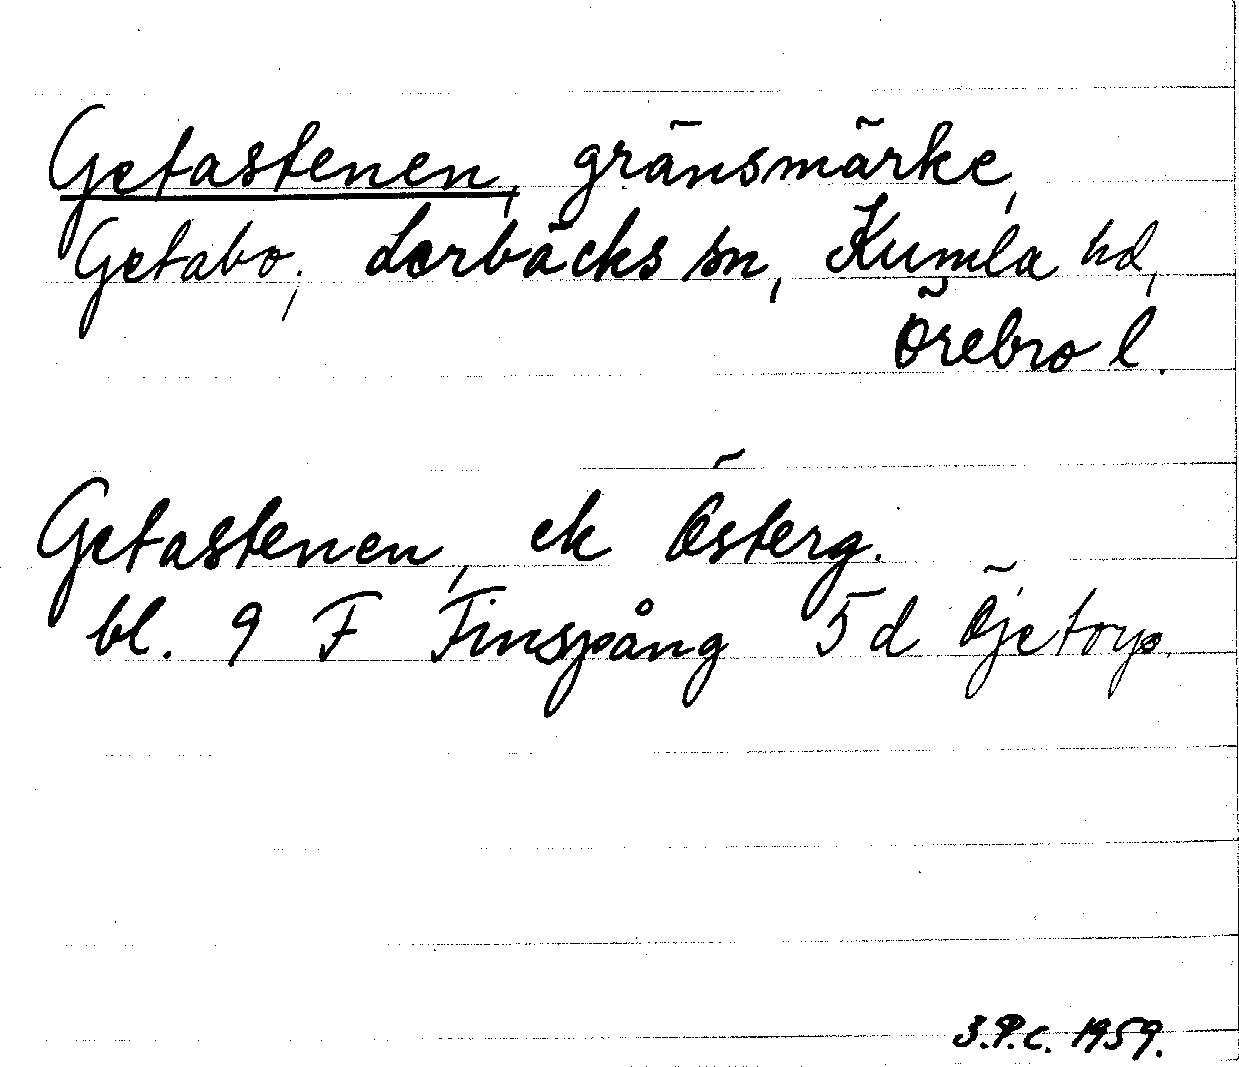 Getastenen, gränsmärke,
Getabo, Lerbäcks sn, Kumla hd,
Örebro l.
Getastenen, ek Österg.
bl. 9 F Finspång 5 d Öjetorp.
3.P.C. 1959.